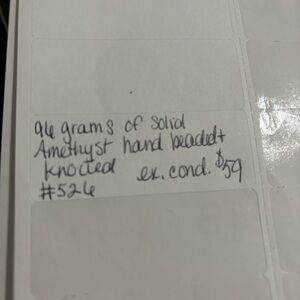 96 grams of solid
Amethyst hand beaded +
knotted ex. cond. $59
#526